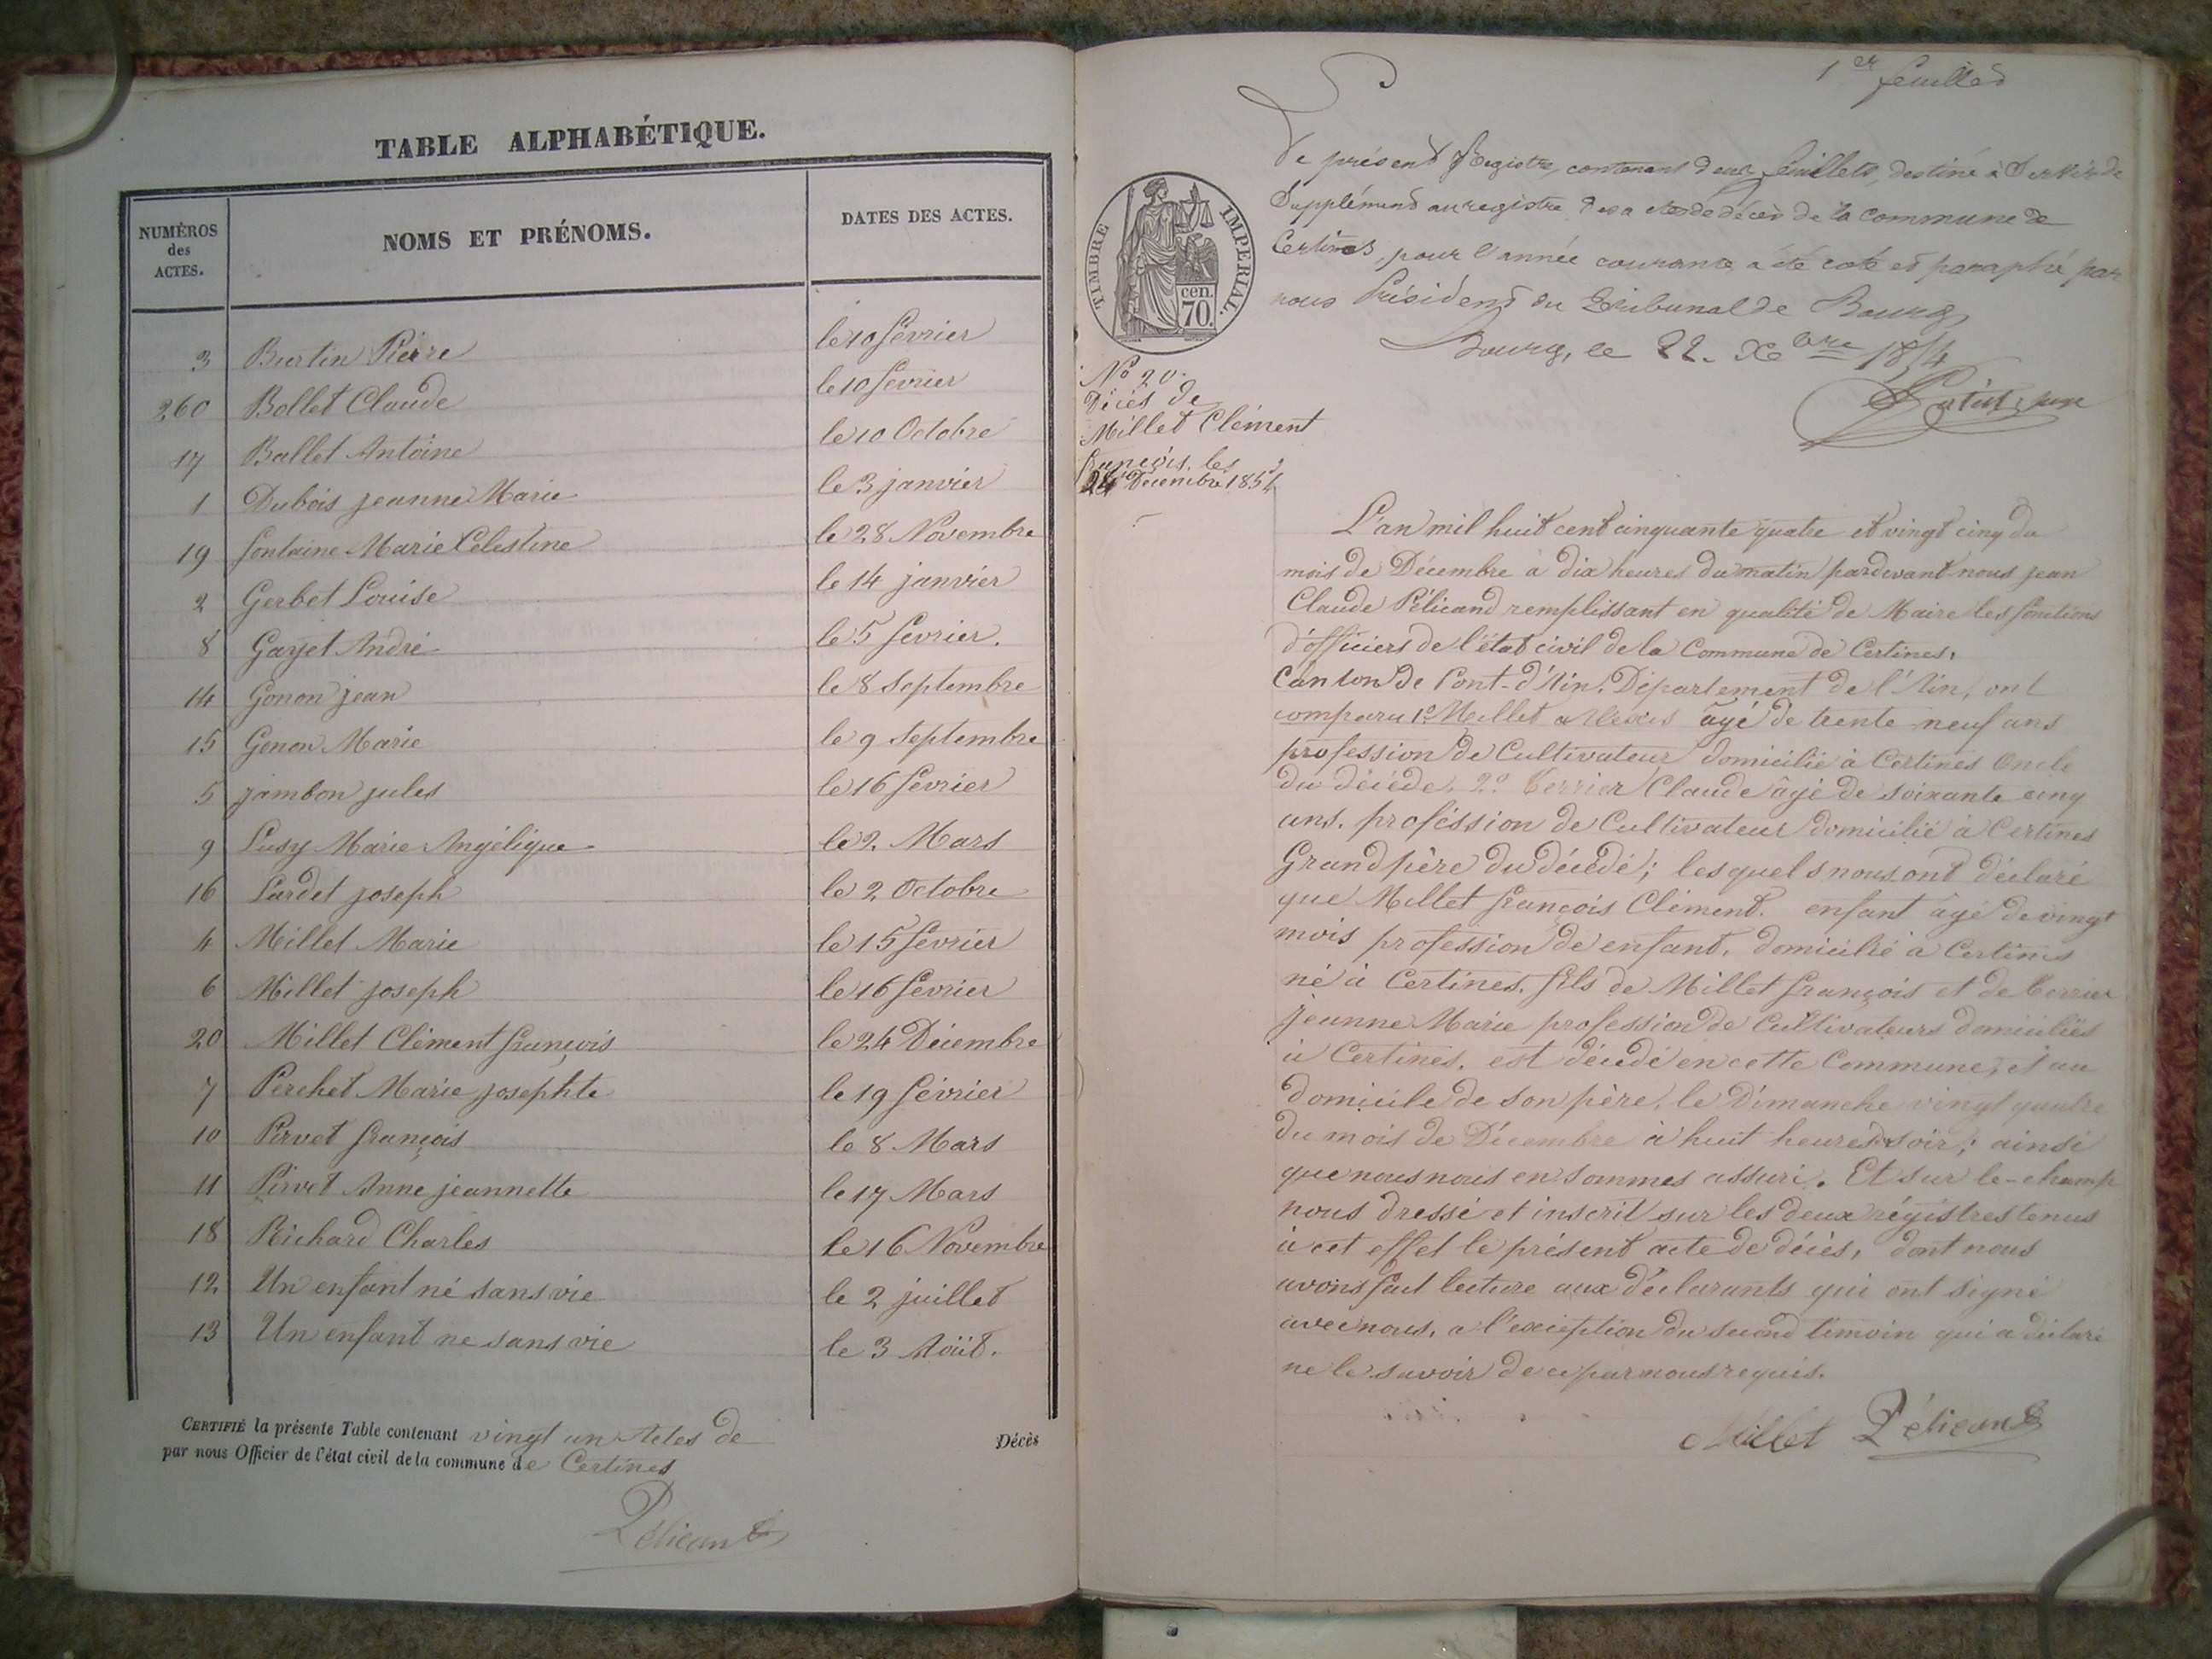 TABLE ALPHABÉTIQUE.
NUMÉROS des ACTES. NOMS ET PRÉNOMS. DATES DES ACTES.
3 Burtin Pierre le 10 février
260 Bollet Claude le 10 février
17 Ballet Antoine le 10 Octobre
1 Dubois jeanne Marie le 3 janvier
19 fontaine Marie Célestine le 28 Novembre
2 Gerbet Louise le 14 janvier
8 Gayet André le 5 fevrier.
14 Gonon jean le 8 Septembre
15 Gonon Marie le 9 Septembre
5 jambon jules le 16 fevrier
9 Lusy Marie Angélique le 2. Mars
16 Lardet joseph le 2 Octobre
4 Millet Marie le 15 fevrier
6 Millet joseph le 16 fevrier
20 Millet Clément françois le 24 Décembre
7 Perchet Marie josephte le 19 février
10 Pirvet françois le 8 Mars
11 Pirvet Anne jeannette le 17 Mars
18 Richard Charles le 16 Novembre
12 Un enfant né sans vie le 2 juillet
13 Un enfant ne sans vie le 3 Août.
CERTIFIÉ la présente Table contenant vingt un Actes de Décès
par nous Officier de l'état civil de la commune de Certines
Pélicand
1er feuillet
Le présent Registre, contenant deux feuillets, destiné à Servir de
Supplément au registre des actes de décès de la Commune de
Certines, pour l'année courante, a été coté et paraphé par
nous Président du Tribunal de Bourg
Bourg, le 22. Xbre 1854
TIMBRE IMPERIAL.
cen.
70.
No 20.
Décès de
Millet Clément
françois. les
24 Décembre 1854
L'an mil huit cent cinquante quatre et vingt cinq du
mois de Décembre à dix heures du matin pardevant nous jean
Claude Pélicand remplissant en qualité de Maire les fonctions
d'officiers de l'état civil de la Commune de Certines,
Canton de Pont-d'Ain, Département de l'Ain, ont
comparu 1o Millet Alexis âgé de trente neuf ans
profession de Cultivateur domicilié à Certines Oncle
du décédé. 2o Terrier Claude âgé de soixante cinq
ans. profession de Cultivateur domicilié à Certines
Grand père du décédé; lesquels nous ont déclaré
que Millet françois Clément. enfant âgé de vingt
mois profession de enfant, domicilié à Certines
né à Certines, fils de Millet françois et de Terrier
jeanne Marie profession de Cultivateurs domiciliés
à Certines. est décédé en cette Commune, et au
domicile de son père, le Dimanche vingt quatre
du mois de Décembre à huit heures soir; ainsi
que nous nous en sommes assuré. Et sur le-champ
nous dressé et inscrit sur les deux régistres tenus
à cet effet le présent acte de décès, dont nous
avons fait lecture aux déclarants qui ont signé
avec nous, a l'exception du second témoin qui a déclaré
ne le savoir de ce par nous requis.
Millet Pélicand